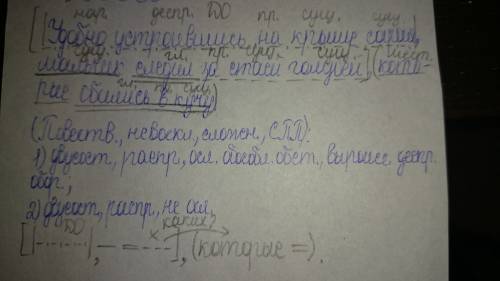 нар. деепр. ДО пр. сущ. сущ.
[|Удобно устроившись на крыше сарая|,
сущ. гл. пр. сущ. сущ. мест.
мальчик следил за стаей голубей], (кото-
гл. пр. сущ.
рые сбились в кучу).
(Повеств., невоскл., сложн., СПП):
1) двусост., распр., осл. обособл. обст., выраж. деепр.
обор.,
2) двусост., распр., не осл.
ДО каких?
[|-·-·-·-|, — = x - - -], (которые =).